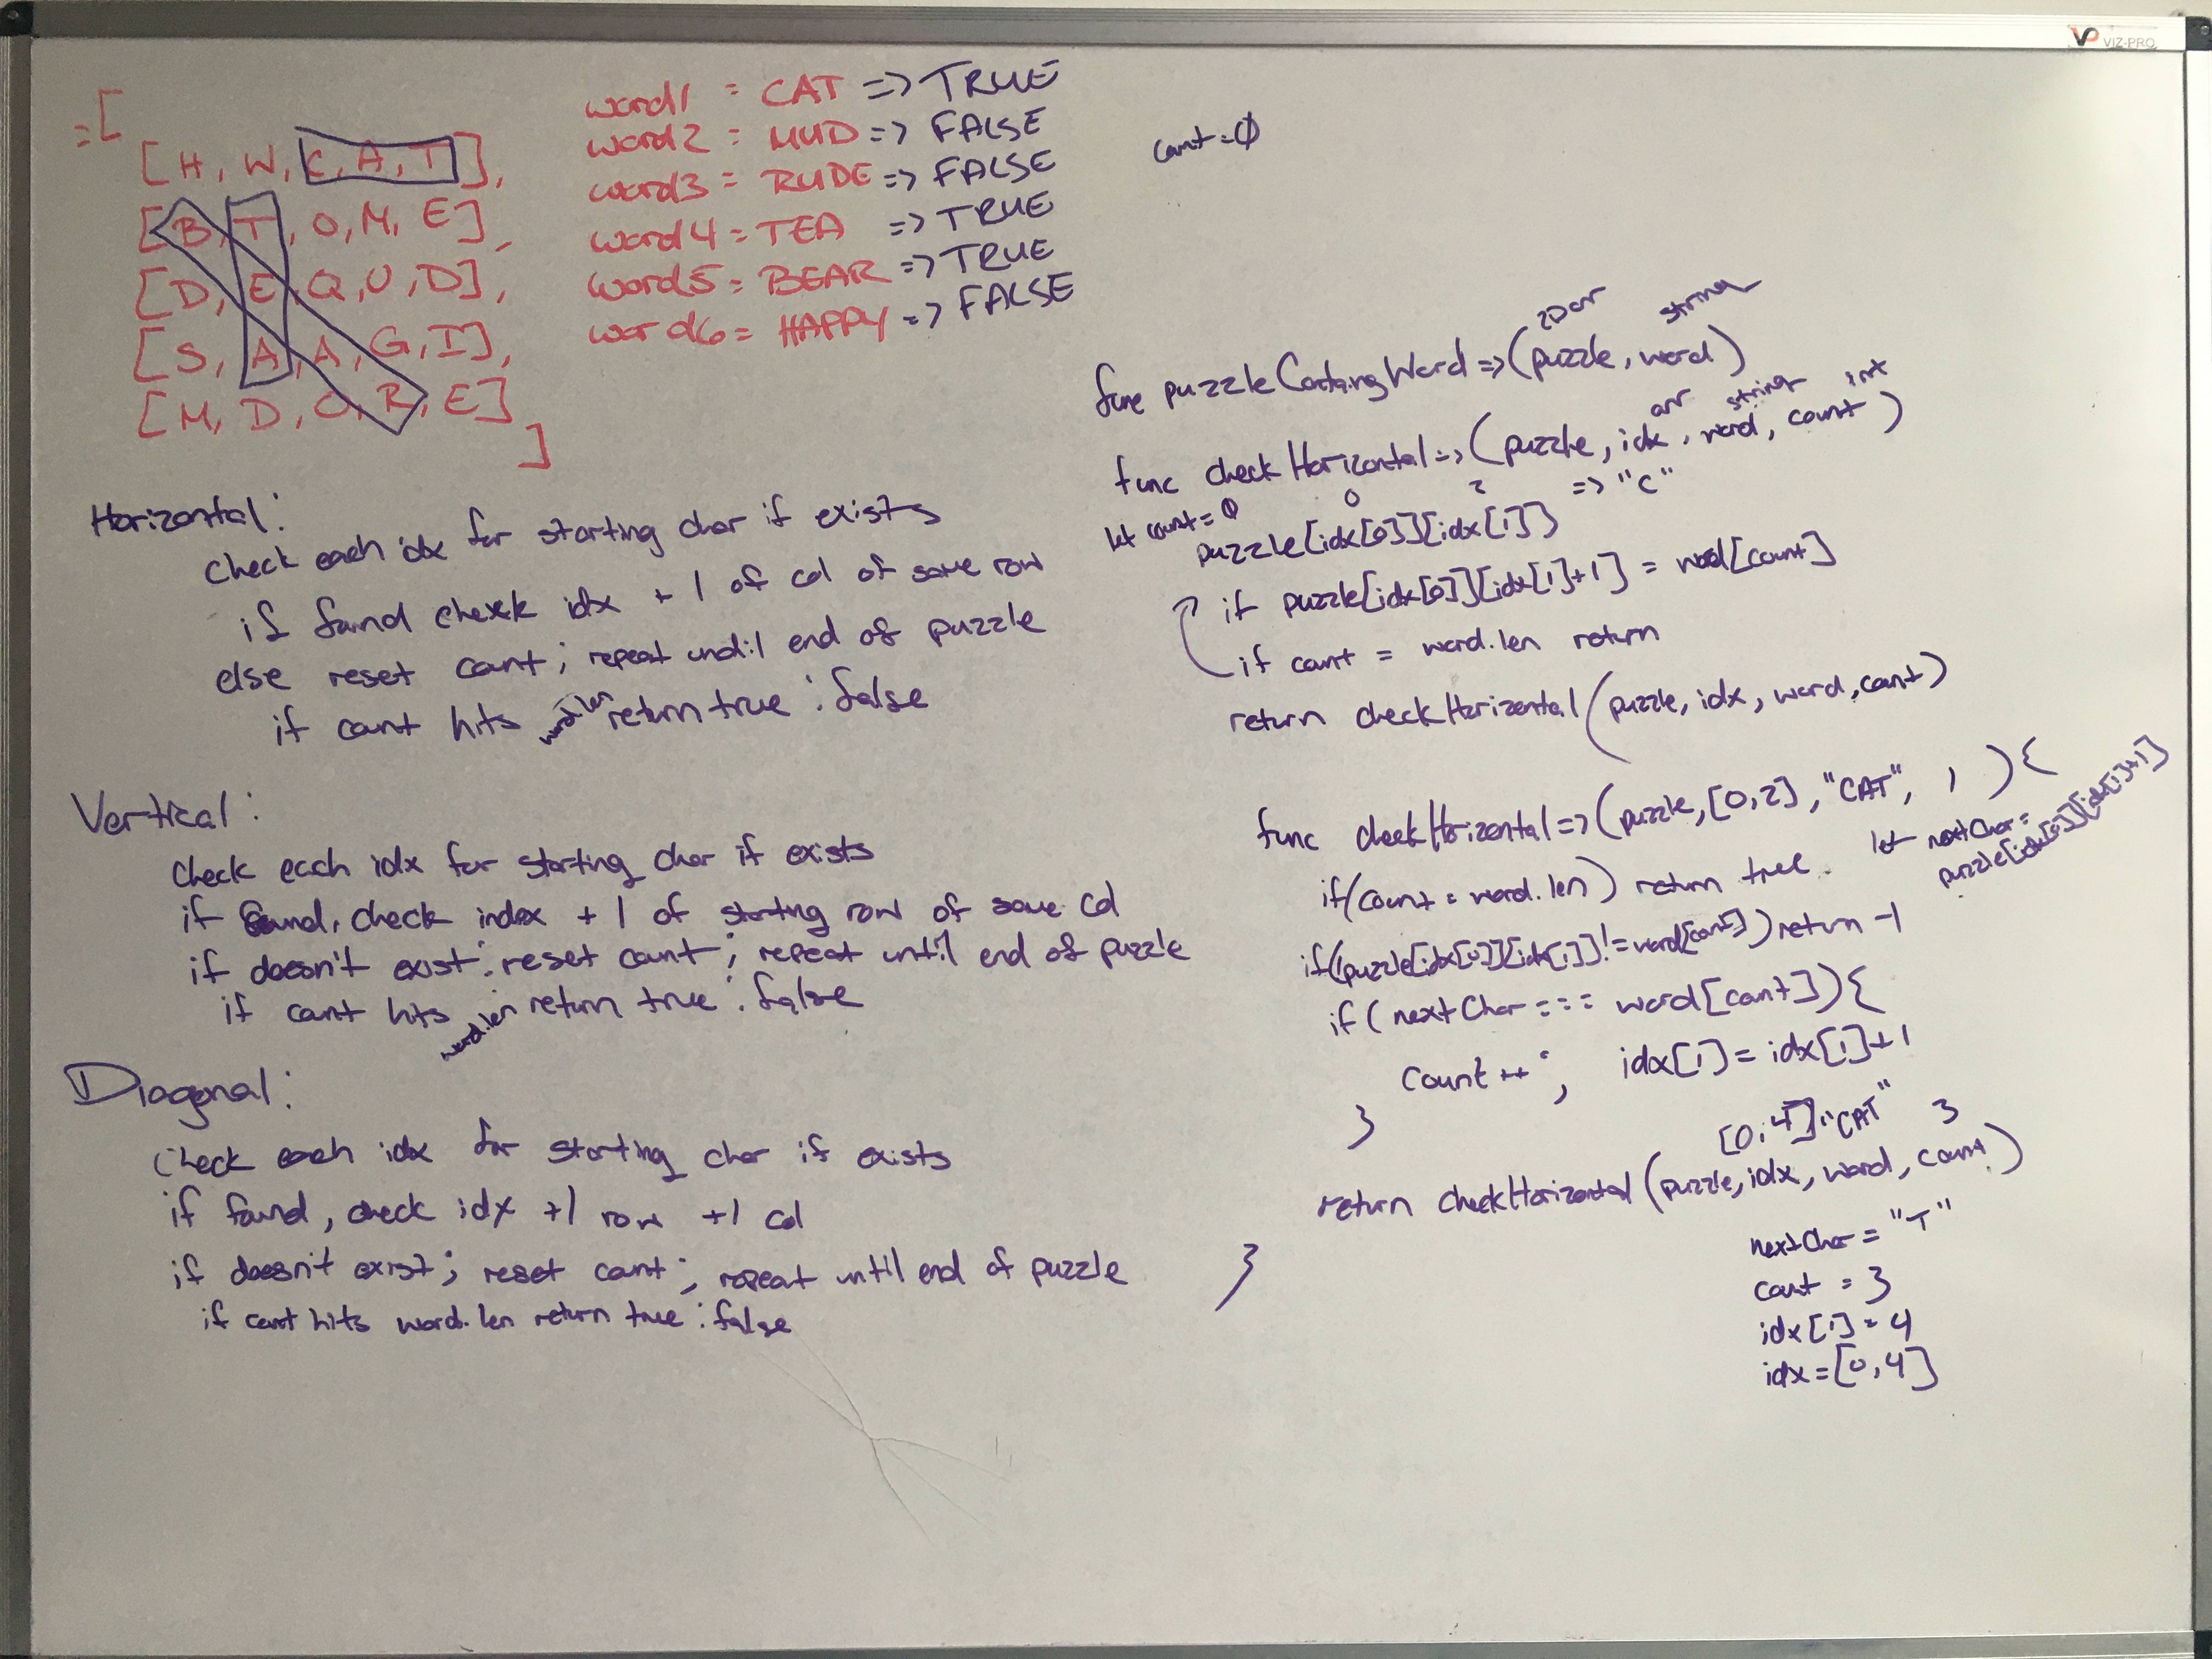 VP VIZ-PRO
= [
[H, W, C, A, T],
[B, T, O, M, E],
[D, E, Q, U, D],
[S, A, A, G, I],
[M, D, C, R, E]
]
word1 = CAT => TRUE
word2 = MUD => FALSE
word3 = RUDE => FALSE
word4 = TEA => TRUE
word5 = BEAR => TRUE
word6 = HAPPY => FALSE
count = 0
Horizontal:
Check each idx for starting char if exists
if found check idx + 1 of col of same row
else reset count; repeat until end of puzzle
if count hits word.len return true : false
Vertical:
Check each idx for starting char if exists
if found, check index + 1 of starting row of same col
if doesn't exist: reset count; repeat until end of puzzle
if count hits word.len return true : false
Diagonal:
Check each idx for starting char if exists
if found, check idx +1 row +1 col
if doesn't exist; reset count; repeat until end of puzzle
if count hits word.len return true : false
2D arr string
func puzzleContaingWord => (puzzle, word)
arr string int
func checkHorizontal => (puzzle, idx, word, count)
let count = 0
0 2
puzzle[idx[0]][idx[1]] => "C"
if puzzle[idx[0]][idx[1]+1] = word[count]
if count = word.len return
return checkHorizontal(puzzle, idx, word, count)
func checkHorizontal => (puzzle, [0,2], "CAT", 1){
let nextChar =
puzzle[idx[0]][idx[1]+1]
if(count = word.len) return true
if(puzzle[idx[0]][idx[1]] != word[count]) return -1
if(nextChar === word[count]){
count++; idx[1] = idx[1]+1
}
[0,4] "CAT" 3
return checkHorizontal(puzzle, idx, word, count)
}
nextChar = "T"
count = 3
idx[1] = 4
idx = [0,4]